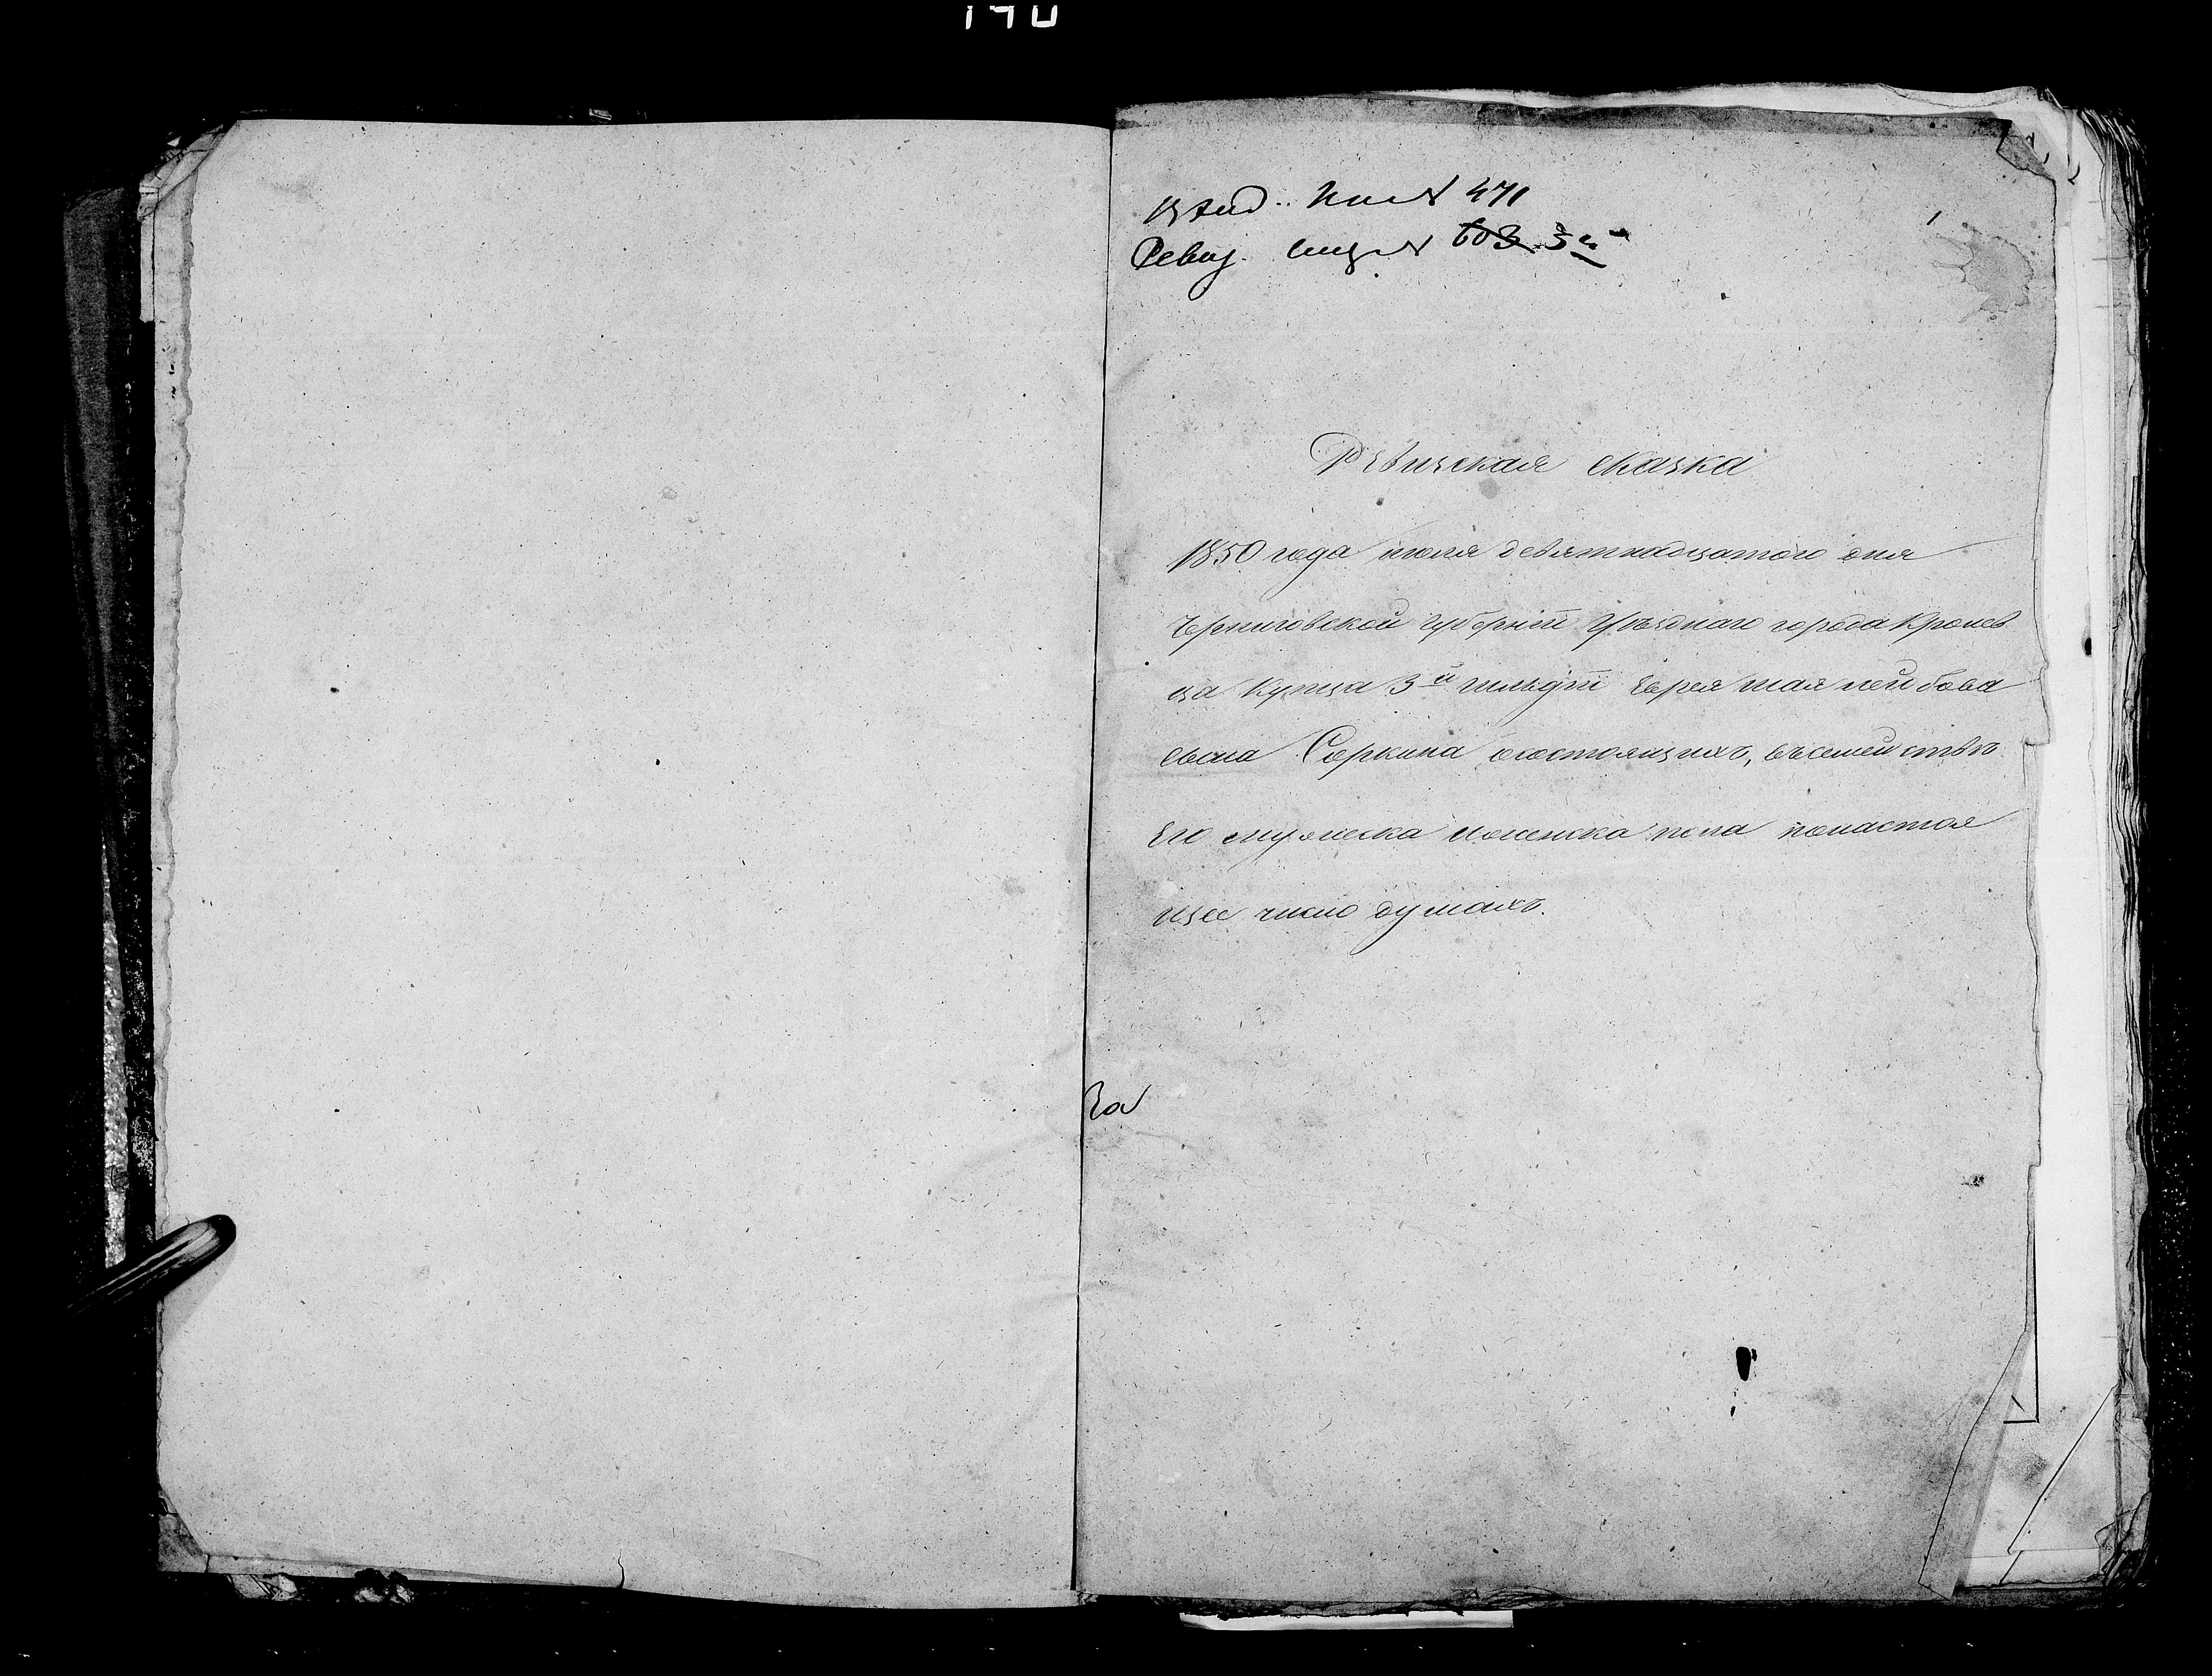 № 471
Ревиз. № 603 3
1
Ревизская сказка
1850 года июля девятнадцатого дня
Черниговской губернии Уѣзднаго города Кролев
ца Купца 3й гильдіи Еврея Шая Лейбова
сына Соркина осостоящихъ, въсемействѣ
Его мужеска иженска пола понастоя
щее число душахъ.
За